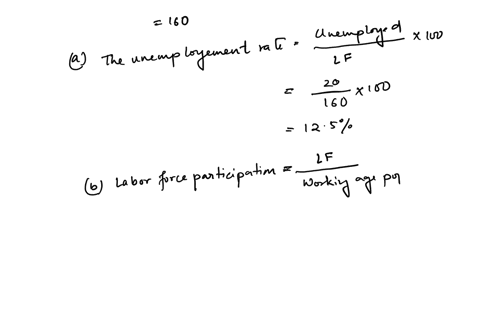 = 160
(a) The unemployement rate = Unemployed / LF × 100
= 20 / 160 × 100
= 12.5%
(b) Labor force participation = LF / Working age pop